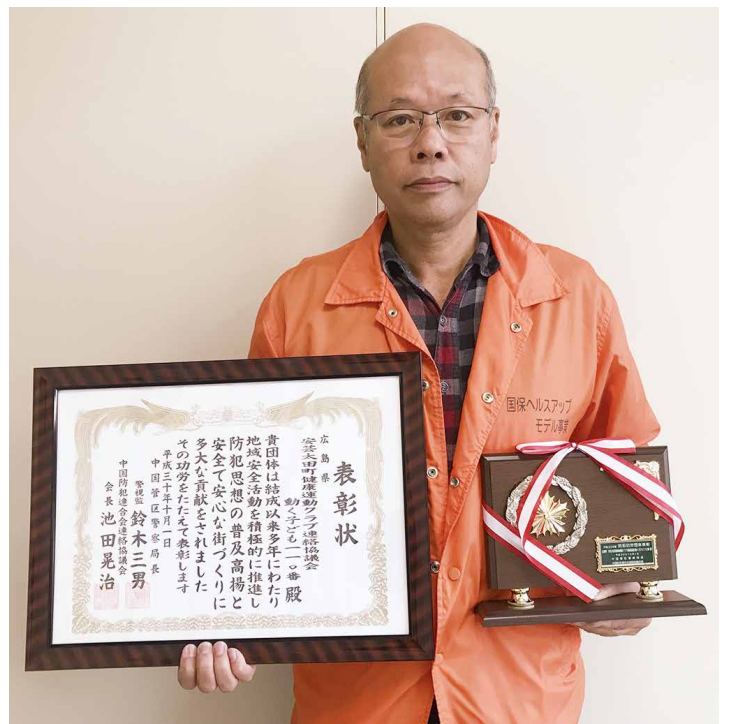 表彰状
広島県
安芸太田町健康運動クラブ連絡協議会
動く子ども一一〇番 殿
貴団体は結成以来多年にわたり
地域安全活動を積極的に推進し
防犯思想の普及高揚と
安全で安心な街づくりに
多大な貢献をされました
その功労をたたえて表彰します
平成三十年十月一日
中国管区警察局長
警視監 鈴木三男
中国防犯連合会連絡協議会
会長 池田晃治
国保ヘルスアップ
モデル事業